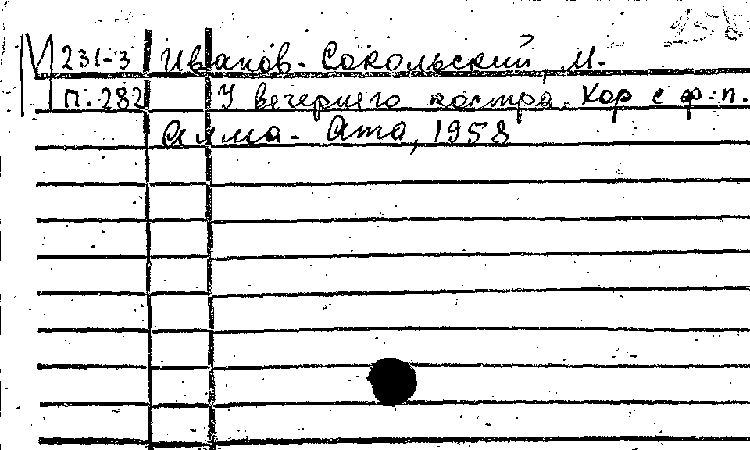 158
М 231-3 Иванов-Сокольский, М.
п. 282 У вечернего костра. Хор с ф.-п.
Алма-Ата, 1958